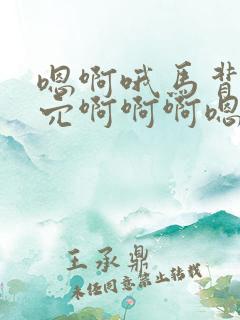 嗯啊哦马背
亢啊啊啊嗯
王承鼎
未经同意禁止转载